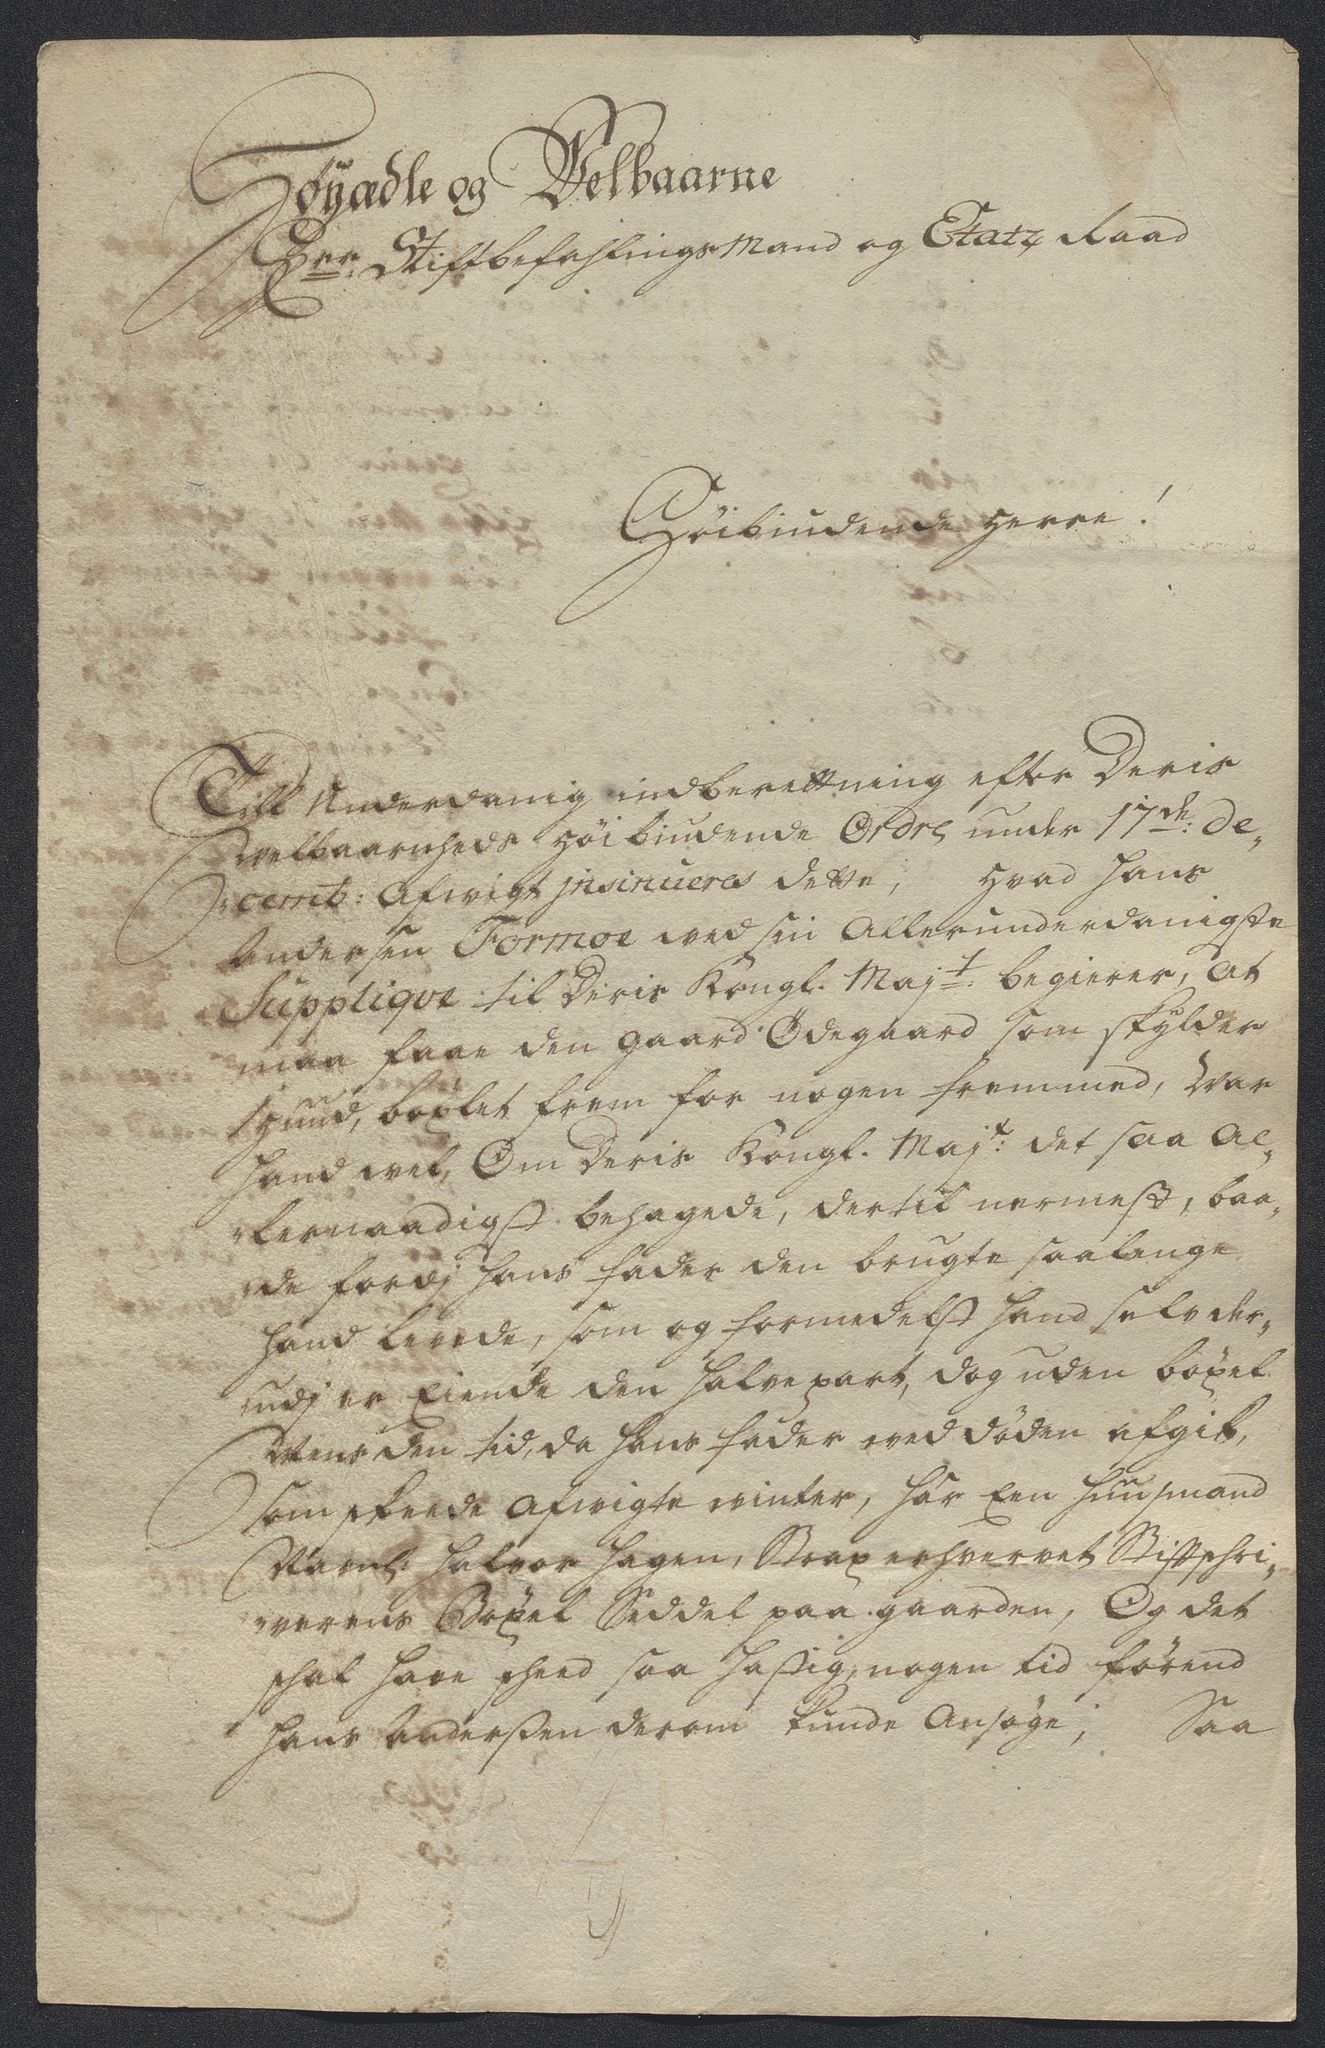 Höyædle og Velbaarne
Hrr: Stiftbefahlings Mand og Etatz Raad
Höibiudende Herre!
Till Underdanig indberettning efter Deris
Welbaarnheds Höibiudende Ordre, under 17de: De„
„cemb: Afvigt jnsinueres dette, Hvad Hans
Andersen Formoe ved sin Allerunderdanigste
Supplique til Deris Kongl. Majt: begierer, at
maa faae den gaard Ödegaard som skylder
1 Hund, böxlet frem for nogen fremmed, War
hand vel, Om Deris Kongl. Majt: det saa al„
„lernaadigst behagede, dertil nermest, baa„
„de fordj Hans fader den brugte saalenge
hand levede, som og formedelst hand selv der„
„udj er Eiende den halvepart, dog uden böxel
Mens den tid, da Hans fader ved döden afgik,
som skeede afvigte vinter, har Een Huusmand
Navnl: Halvor Hagen, Strax erhvervet Stiftschri„
„verens Böxel Seddel paa gaarden, Og det
schal have scheed saa hastig, nogen tid förend
Hans Anderssen derom kunde Ansöge; Saa